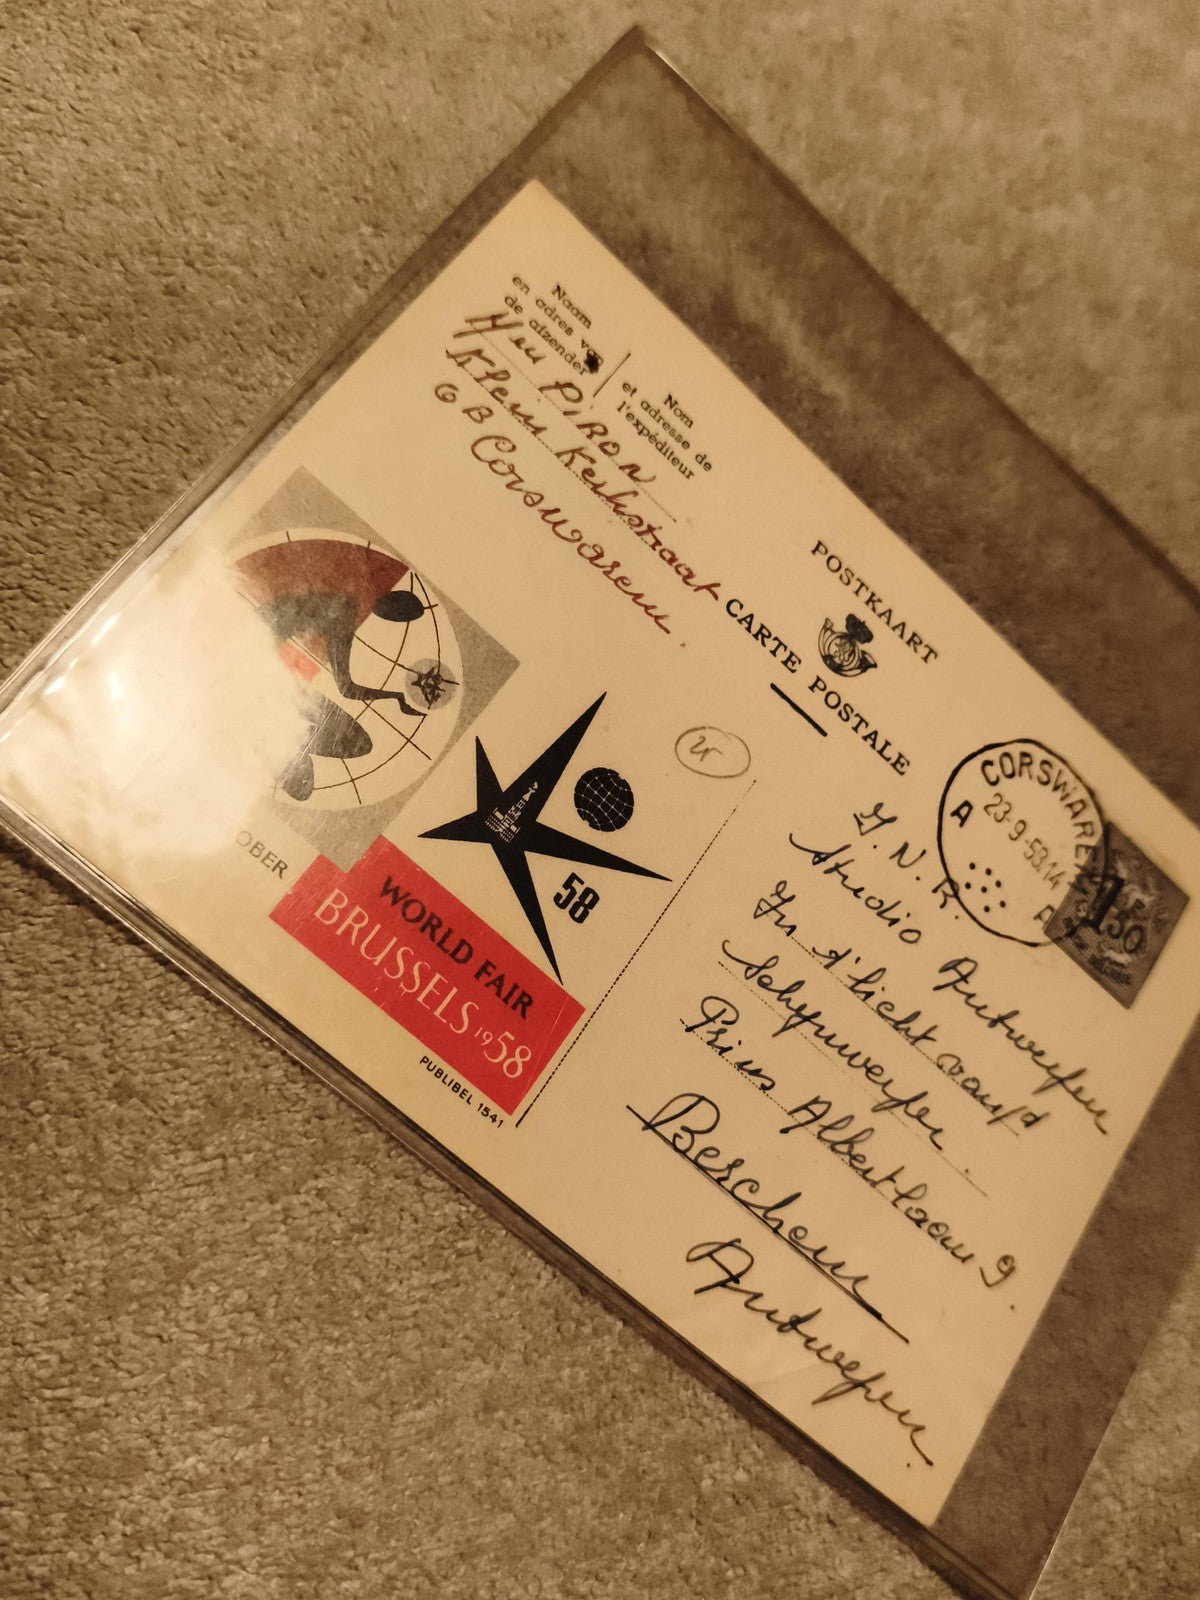 Naam
en adres van
de afzender
Nom
et adresse de
l'expéditeur
PIRON
Klein Kerkstraat
G B Corswarem.
POSTKAART
CARTE POSTALE
CORSWAREM
A A
23-9-58 14
1F50
58
OBER
WORLD FAIR
BRUSSELS 1958
PUBLIBEL 1541
N. R.
Studio Antwerpen
In t' licht van d
Schynwerper.
Prins Albertlaan 9.
Berchem
Antwerpen.